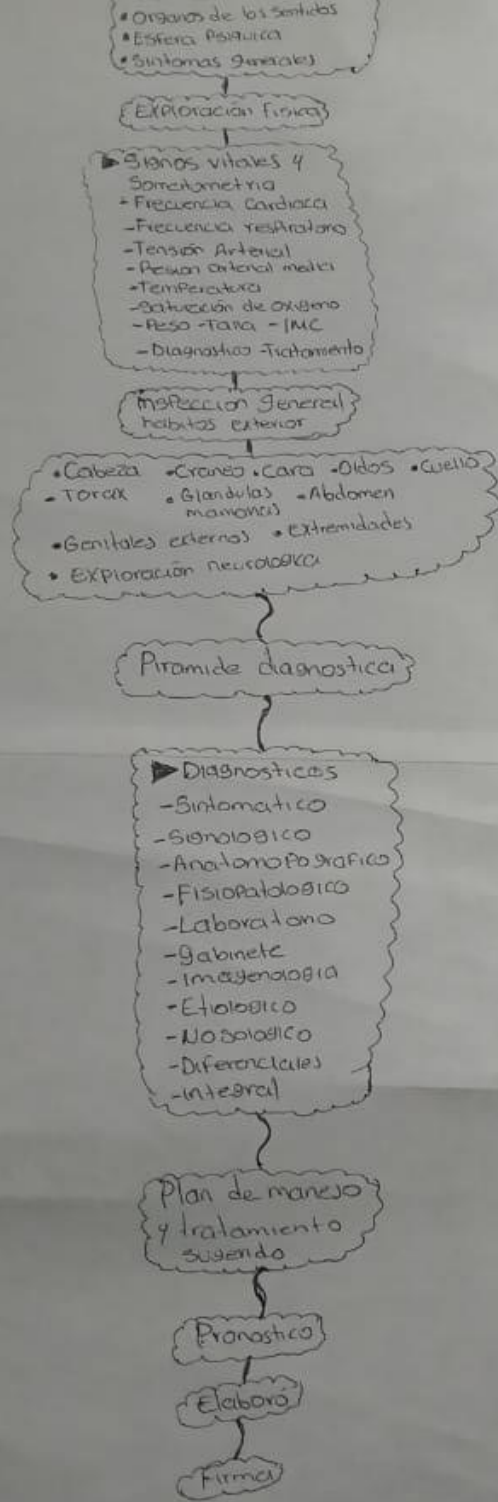 • Organos de los Sentidos
• Esfera Psiquica
• Sintomas generales
Exploración Fisica
Signos vitales y
Somatometria
- Frecuencia Cardiaca
- Frecuencia respiratorio
- Tensión Arterial
- Presion arterial media
- Temperatura
- Saturación de oxigeno
- Peso - Talla - IMC
- Diagnostico - Tratamiento
inspeccion general
habitos exterior
• Cabeza • Craneo • Cara • Oidos • Cuello
- Torax • Glandulas - Abdomen
mamarias
• Genitales externos • extremidades
• Exploración neurologica
Piramide diagnostica
Diagnosticos
- Sintomatico
- Signologico
- Anatomopografico
- Fisiopatologico
- Laboratorio
- gabinete
- Imagenologia
- Etiologico
- Nosologico
- Diferenciales
- integral
Plan de manejo
y tratamiento
sugerido
Pronostico
Elaboró
Firma